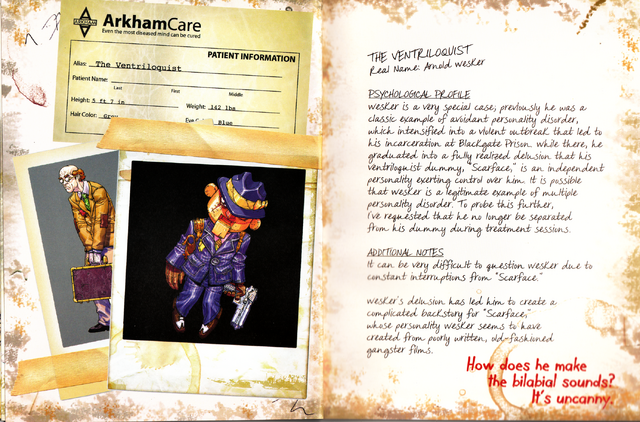 ARKHAM
ArkhamCare
Even the most diseased mind can be cured
PATIENT INFORMATION
Alias: The Ventriloquist
Patient Name:
Last First Middle
Height: 5 ft 7 in Weight: 142 lbs
Hair Color: Blue
THE VENTRILOQUIST
Real Name: Arnold Wesker
PSYCHOLOGICAL PROFILE
Wesker is a very special case; previously he was a
classic example of avoidant personality disorder,
which intensified into a violent outbreak that led to
his incarceration at Blackgate Prison. While there, he
graduated into a fully realized delusion that his
ventriloquist dummy, "Scarface," is an independent
personality exerting control over him. It is possible
that Wesker is a legitimate example of multiple
personality disorder. To probe this further,
I've requested that he no longer be separated
from his dummy during treatment sessions.
ADDITIONAL NOTES
It can be very difficult to question Wesker due to
constant interruptions from "Scarface."
Wesker's delusion has led him to create a
complicated backstory for "Scarface,"
whose personality Wesker seems to have
created from poorly written, old-fashioned
gangster films.
How does he make
the bilabial sounds?
It's uncanny.